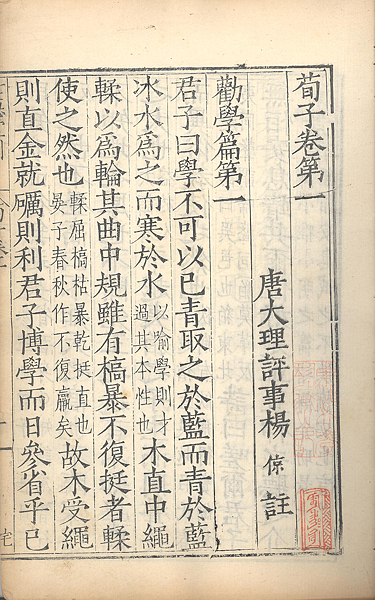 荀子卷第一
唐大理評事楊倞註
勸學篇第一
君子曰學不可以已青取之於藍而青於藍
冰水爲之而寒於水以喻學則才過其本性也木直中繩
輮以爲輪其曲中規雖有槁暴不復挺者輮
使之然也輮屈槁枯暴乾挺直也晏子春秋作不復贏矣故木受繩
則直金就礪則利君子博學而日參省乎已